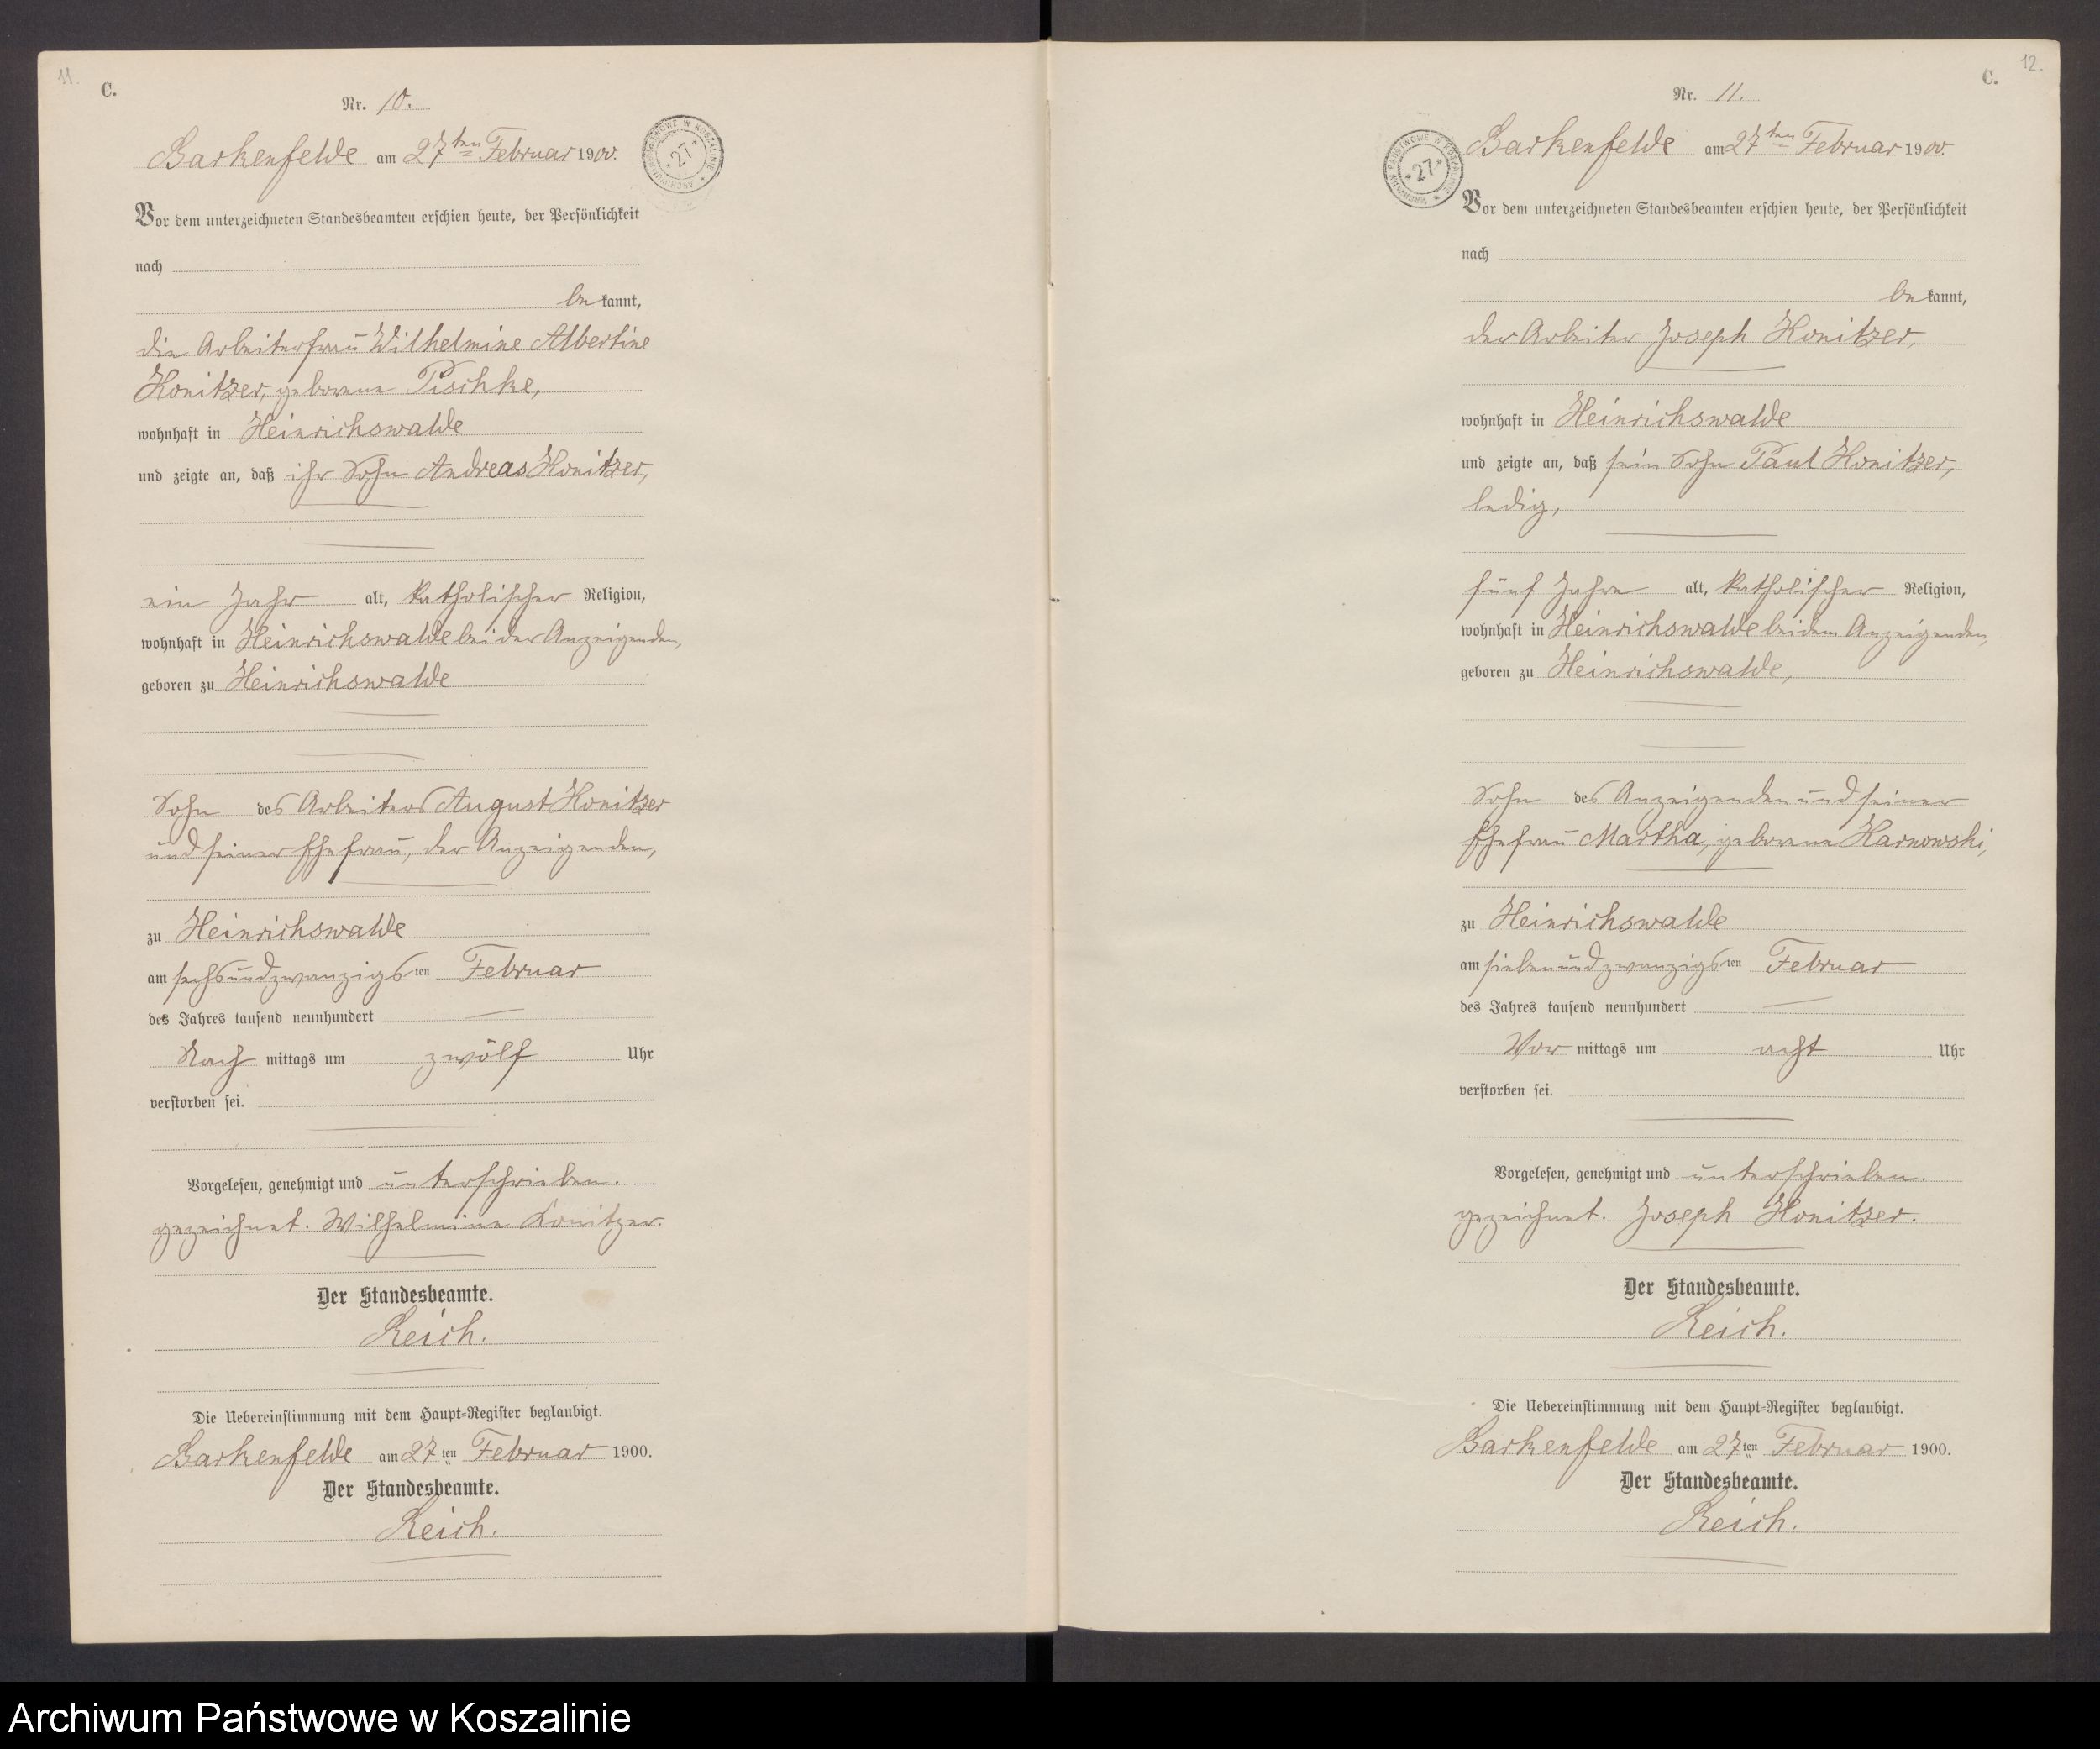 11.
C.
Nr. 10.
Barkenfelde am 27ten Februar 1900.
ARCHIWUM PAŃSTWOWE W KOSZALINIE * 27 *
Vor dem unterzeichneten Standesbeamten erschien heute, der Persönlichkeit
nach
bekannt,
die Arbeiterfrau Wilhelmine Albertine
Konitzer, geborene Pischke,
wohnhaft in Heinrichswalde
und zeigte an, daß ihr Sohn Andreas Konitzer,
ein Jahr alt, katholischer Religion,
wohnhaft in Heinrichswalde bei der Anzeigenden,
geboren zu Heinrichswalde
Sohn des Arbeiters August Konitzer
und seiner Ehefrau, der Anzeigenden,
zu Heinrichswalde
am sechsundzwanzigsten Februar
des Jahres tausend neunhundert
Nachmittags um zwölf Uhr
verstorben sei.
Vorgelesen, genehmigt und unterschrieben.
gezeichnet. Wilhelmine Konitzer.
Der Standesbeamte.
Reich.
Die Uebereinstimmung mit dem Haupt-Register beglaubigt.
Barkenfelde am 27ten Februar 1900.
Der Standesbeamte.
Reich.
12.
C.
Nr. 11.
Barkenfelde am 27ten Februar 1900.
ARCHIWUM PAŃSTWOWE W KOSZALINIE * 27 *
Vor dem unterzeichneten Standesbeamten erschien heute, der Persönlichkeit
nach
bekannt,
der Arbeiter Joseph Konitzer,
wohnhaft in Heinrichswalde
und zeigte an, daß sein Sohn Paul Konitzer,
ledig,
fünf Jahre alt, katholischer Religion,
wohnhaft in Heinrichswalde bei dem Anzeigenden,
geboren zu Heinrichswalde,
Sohn des Anzeigenden und seiner
Ehefrau Martha, geborene Karnowski,
zu Heinrichswalde
am siebenundzwanzigsten Februar
des Jahres tausend neunhundert
Vormittags um acht Uhr
verstorben sei.
Vorgelesen, genehmigt und unterschrieben.
gezeichnet. Joseph Konitzer.
Der Standesbeamte.
Reich.
Die Uebereinstimmung mit dem Haupt-Register beglaubigt.
Barkenfelde am 27ten Februar 1900.
Der Standesbeamte.
Reich.
Archiwum Państwowe w Koszalinie